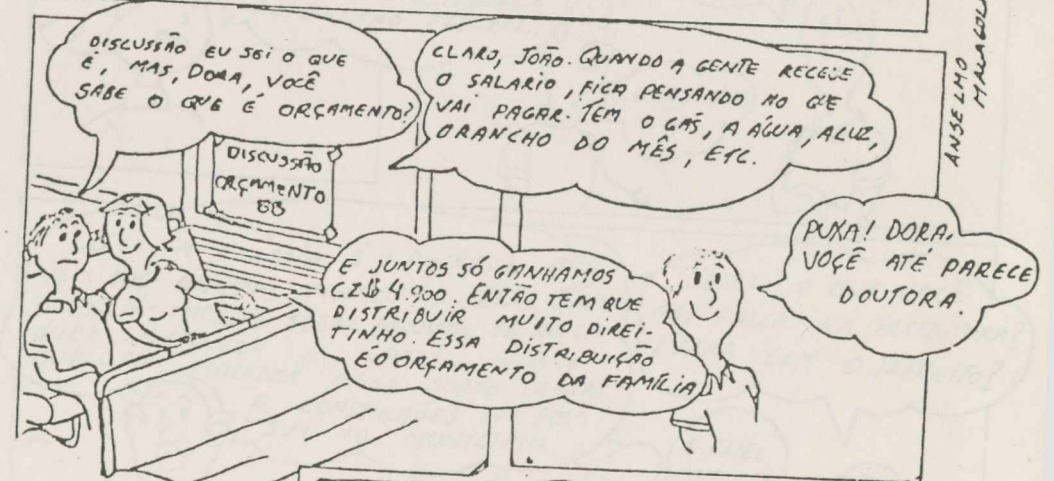 DISCUSSÃO EU SEI O QUE
É, MAS, DORA, VOCÊ
SABE O QUE É ORÇAMENTO?
DISCUSSÃO
ORÇAMENTO
88
CLARO, JOÃO. QUANDO A GENTE RECEBE
O SALARIO, FICA PENSANDO NO QUE
VAI PAGAR. TEM O GÁS, A ÁGUA, A LUZ,
O RANCHO DO MÊS, ETC.
E JUNTOS SÓ GANHAMOS
CZ$ 4.900. ENTÃO TEM QUE
DISTRIBUIR MUITO DIREI-
TINHO. ESSA DISTRIBUIÇÃO
É O ORÇAMENTO DA FAMÍLIA
PUXA! DORA,
VOÇÊ ATÉ PARECE
DOUTORA.
ANSELMO